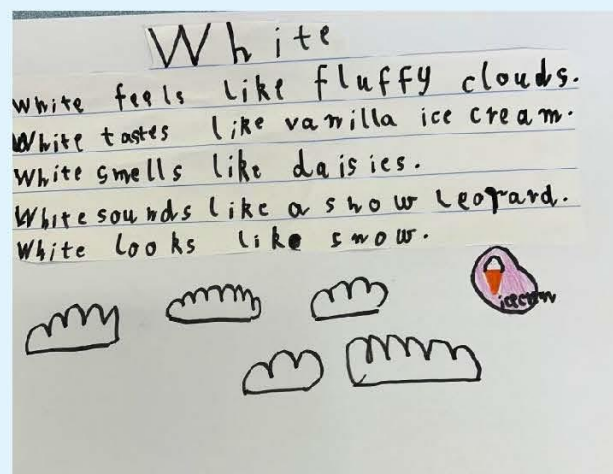 White
White feels like fluffy clouds.
White tastes like vanilla ice cream.
White smells like daisies.
White sounds like a snow leopard.
White looks like snow.
icecream